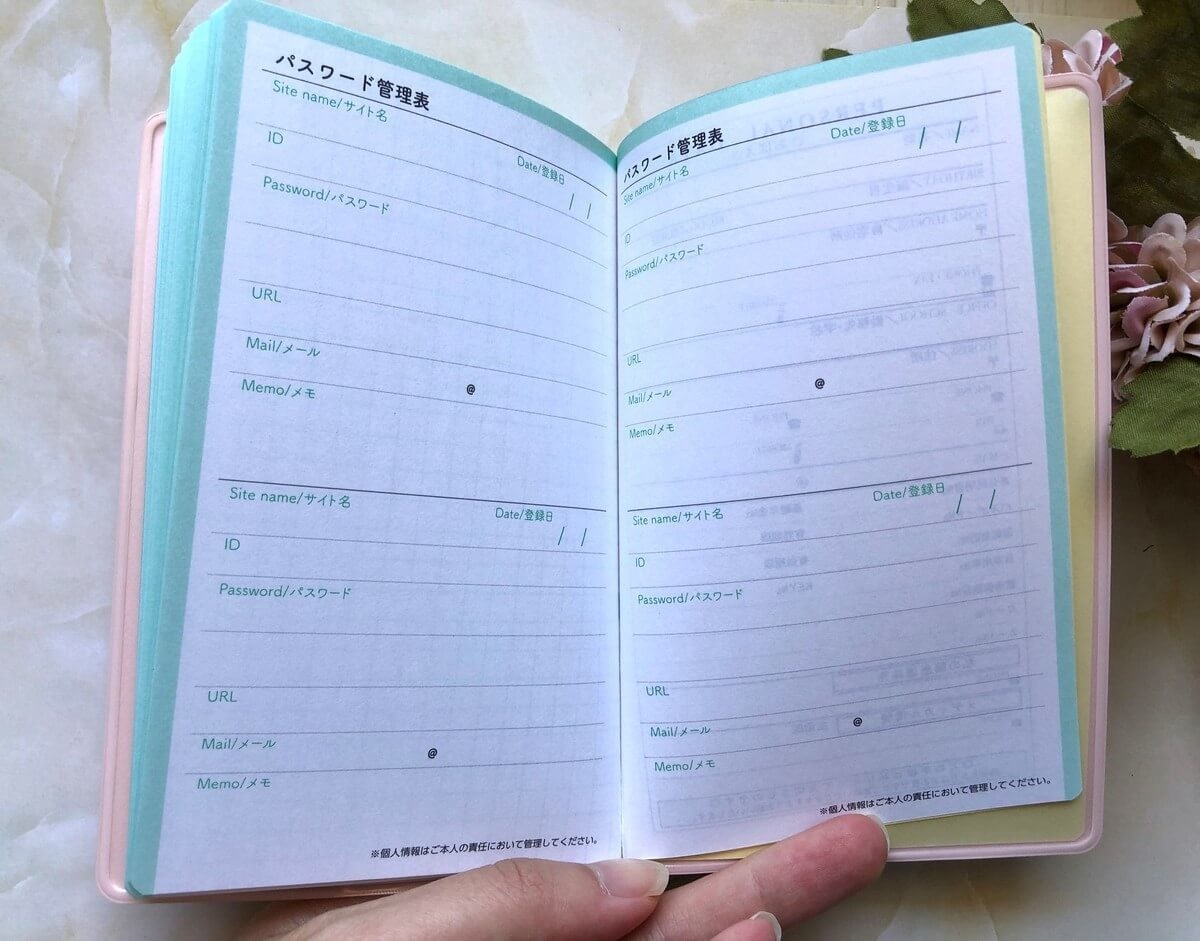 パスワード管理表
Site name/サイト名
Date/登録日 / /
ID
Password/パスワード
URL
Mail/メール
@
Memo/メモ
Site name/サイト名
Date/登録日 / /
ID
Password/パスワード
URL
Mail/メール
@
Memo/メモ
※個人情報はご本人の責任において管理してください。
パスワード管理表
Date/登録日 / /
Site name/サイト名
ID
Password/パスワード
URL
Mail/メール
@
Memo/メモ
Site name/サイト名
Date/登録日 / /
ID
Password/パスワード
URL
Mail/メール
@
Memo/メモ
※個人情報はご本人の責任において管理してください。